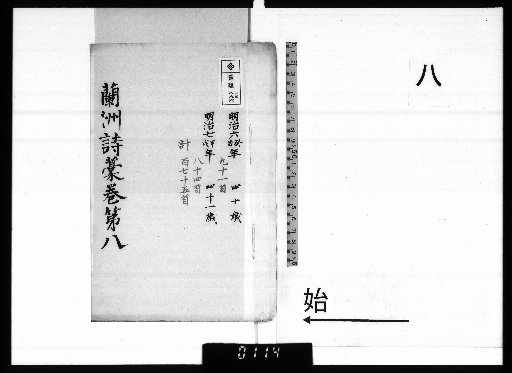 八
始
明治六癸酉年 四十歳
九十一首
明治七甲戌年 四十一歳
八十四首
計 百七十五首
蘭洲詩藁巻第八
0114